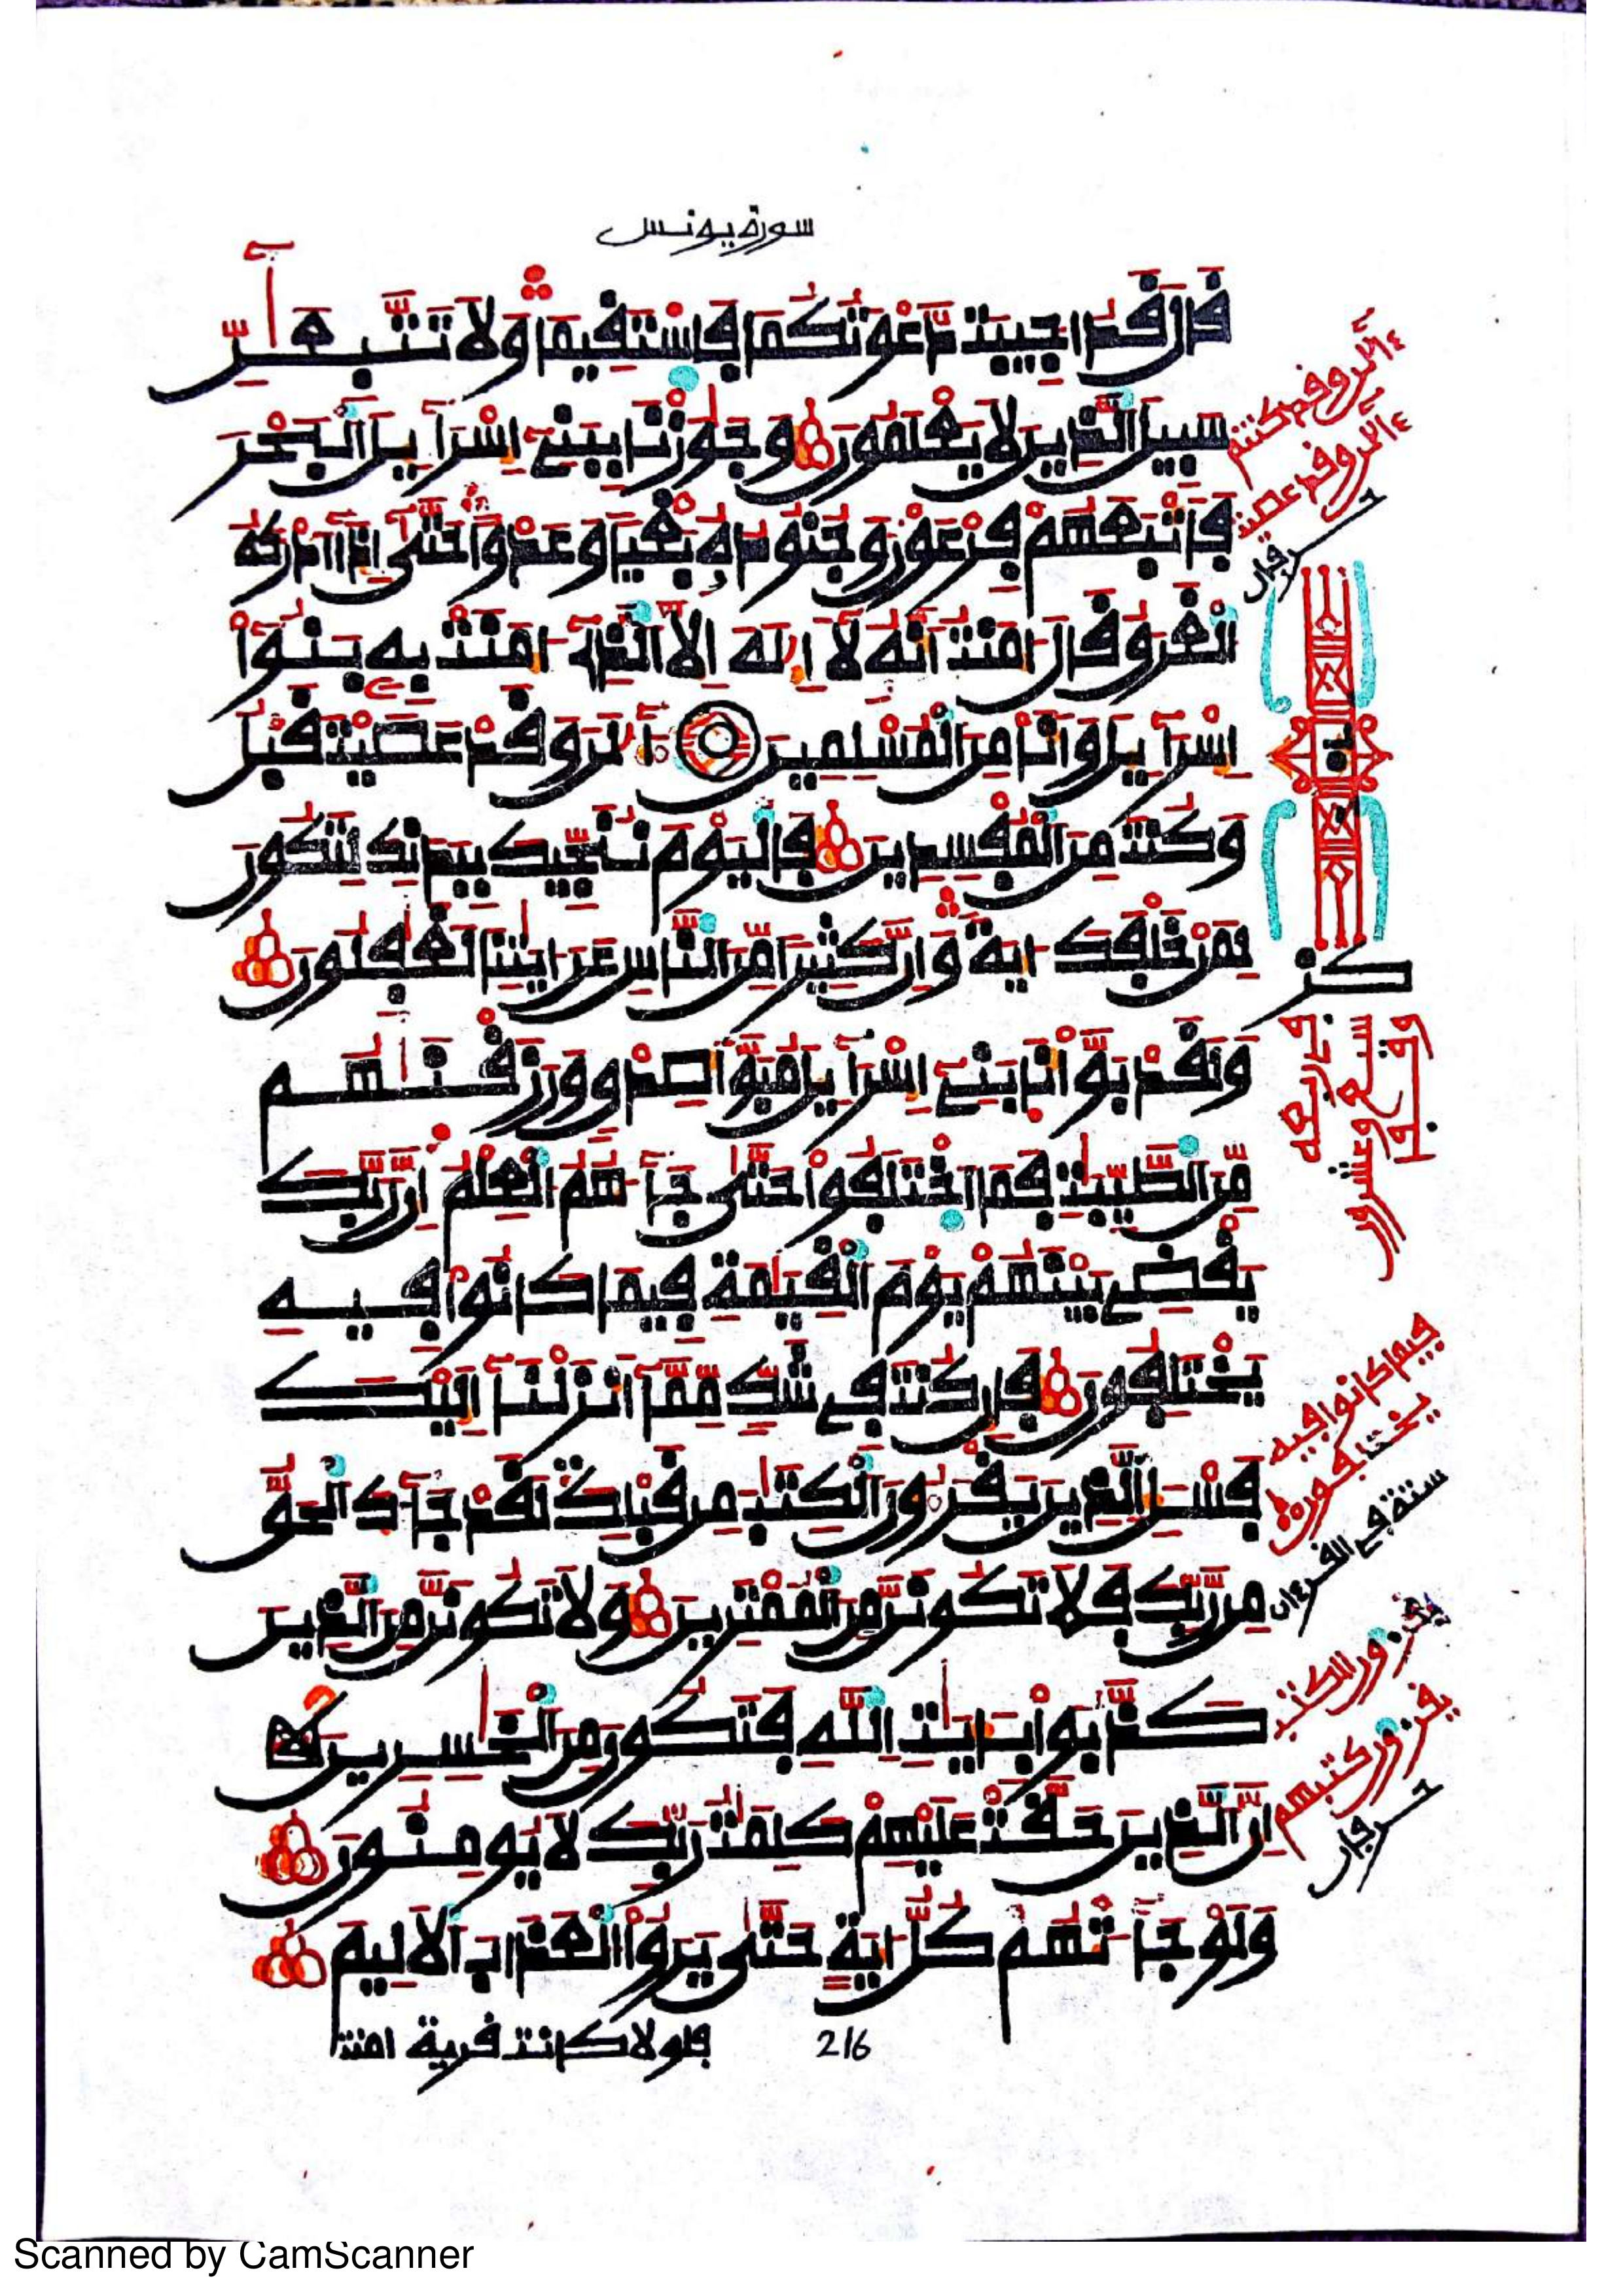 سورة يونس
قَالَ قَدُ اجِيبَت دَّعْوَتُكُمَا فَاسْتَقِيمَا وَلَا تَتَّبِعَآنِّ
سَبِيلَ الذِينَ لَا يَعْلَمُونَ وَجَٰوَزْنَا بِبَنِےٓ إِسْرَآءِيلَ اَلْبَحْرَ
فَأَتْبَعَهُمْ فِرْعَوْنُ وَجُنُودُهُۥ بَغْيا وَعَدْواً حَتَّىٰٓ إِذَآ أَدْرَكَهُ
اُلْغَرَقُ قَالَ ءَامَنتُ أَنَّهُۥ لَآ إِلَٰهَ إِلَّا اَلذِےٓ ءَامَنَتْ بِهِۦ بَنُوٓاْ
إِسْرَآءِيلَ وَأَنَا مِنَ اَلْمُسْلِمِينَ ءَآلَٰنَ وَقَدْ عَصَيْتَ قَبْلُ
وَكُنتَ مِنَ اَلْمُفْسِدِينَ فَالْيَوْمَ نُنَجِّيكَ بِبَدَنِكَ لِتَكُونَ
لِمَنْ خَلْفَكَ ءَايَةً وَإِنَّ كَثِيراً مِّنَ اَلنَّاسِ عَنَ ءَايَٰتِنَا لَغَٰفِلُونَ
وَلَقَدْ بَوَّأْنَا بَنِےٓ إِسْرَآءِيلَ مُبَوَّأَ صِدْقٍ وَرَزَقْنَٰهُم
مِّنَ اَلطَّيِّبَٰتِ فَمَا اَخْتَلَفُواْ حَتَّىٰ جَآءَهُمُ اُلْعِلْمُ إِنَّ رَبَّكَ
يَقْضِے بَيْنَهُمْ يَوْمَ اَلْقِيَٰمَةِ فِيمَا كَانُواْ فِيهِ
يَخْتَلِفُونَ فَإِن كُنتَ فِے شَكٍّ مِّمَّآ أَنزَلْنَآ إِلَيْكَ
فَسْـَٔلِ اِلذِينَ يَقْرَءُونَ اَلْكِتَٰبَ مِن قَبْلِكَ لَقَدْ جَآءَكَ اَلْحَقُّ
مِن رَّبِّكَ فَلَا تَكُونَنَّ مِنَ اَلْمُمْتَرِينَ وَلَا تَكُونَنَّ مِنَ اَلذِينَ
كَذَّبُواْ بِـَٔايَٰتِ اِللَّهِ فَتَكُونَ مِنَ اَلْخَٰسِرِينَ
إِنَّ اَلذِينَ حَقَّتْ عَلَيْهِمْ كَلِمَتُ رَبِّكَ لَا يُومِنُونَ
وَلَوْ جَآءَتْهُمْ كُلُّ ءَايَةٍ حَتَّىٰ يَرَوُاْ اُلْعَذَابَ اَلَالِيمَ
فلولا كانت قرية امنت
216
ءآلن وقد كنتم
ءآلن وقد عصيت
فيما كانوا فيه
يختلفون
ستة في القرءان
يقرءون الكتب
يقرءون كتبهم
حرفان
Scanned by CamScanner